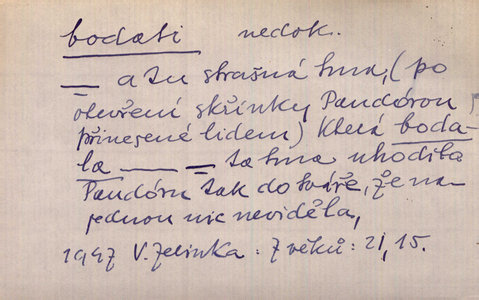 bodati nedok.
— a tu strašná tma, (po
otevření skřínky Pandórou,
přinesené lidem) která boda-
la — = ta tma uhodila
Pandóru tak do tváře, že na-
jednou nic neviděla,
1947 V. Zelinka: Z věků: 21, 15.